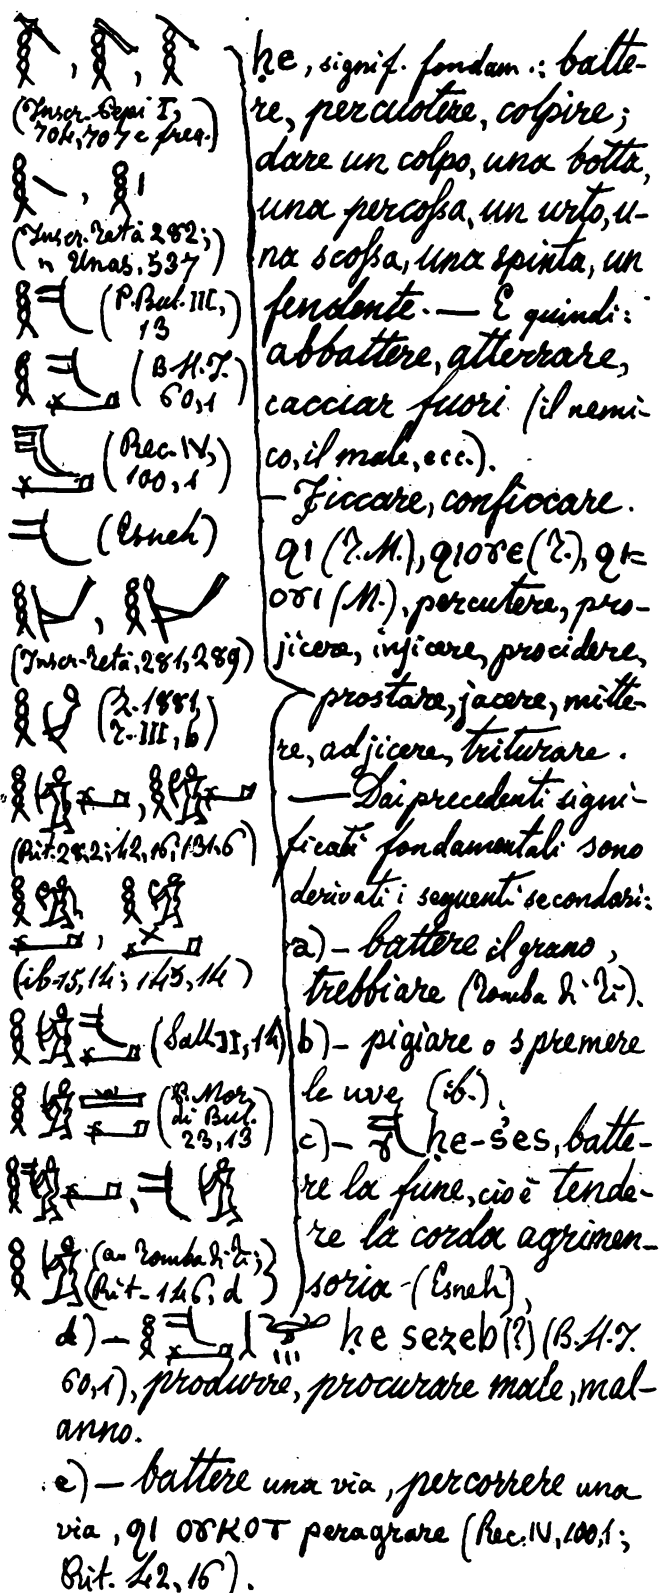 (Inscr. Pepi I,
704,707 e freq.)
(Inscr. Tetà 282;
n Unas, 537)
(P. Bul. III,
13)
(B.H.I.
60,1)
(Rec. IV,
100,1)
(Esneh)
(Inscr. Tetà, 281, 289)
(Z. 1881
T. III, b)
(Rit. 28,2; 42,16; 131,6)
(ib. 15,14; 145,14)
(Sall. II, 14)
(P. Mor.
di Bul.
23,13)
(an. Tomba di Ti;
Rit. 146, d)
ḥe, signif. fondam.: batte-
re, percuotere, colpire;
dare un colpo, una botta,
una percoſsa, un urto, u-
na scoſsa, una spinta, un
fendente. — E quindi:
abbattere, atterrare,
cacciar fuori (il nemi-
co, il male, ecc.).
— Ficcare, conficcare.
ϩⲓ (T.M.), ϩⲓⲟⲩⲉ (T.), ϩⲓ-
ⲟⲩⲓ (M.), percutere, pro-
jicere, injicere, procidere,
prostare, jacere, mitte-
re, adjicere, triturare.
— Dai precedenti signi-
ficati fondamentali sono
derivati i seguenti secondari:
a) — battere il grano,
trebbiare (Tomba di Ti).
b) — pigiare o spremere
le uve (ib.).
c) — ḥe-šes, batte-
re la fune, cioè tende-
re la corda agrimen-
soria — (Esneh),
d) — ḥe sezeb (?) (B.H.I.
60,1), produrre, procurare male, mal-
anno.
e) — battere una via, percorrere una
via, ϩⲓ ⲟⲩⲕⲟⲧ peragrare (Rec. IV, 100, 1;
Rit. 42, 16).